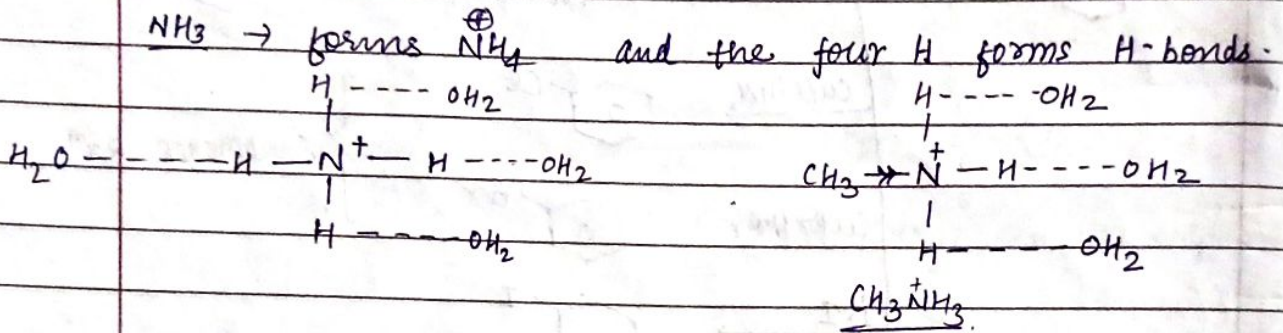 NH3 → forms N⊕H4 and the four H forms H-bonds.
H ---- OH2 H ---- OH2
H2O ----- H — N+ — H ---- OH2 CH3 →→ N+ — H ---- OH2
H ---- OH2 H ---- OH2
CH3N+H3.